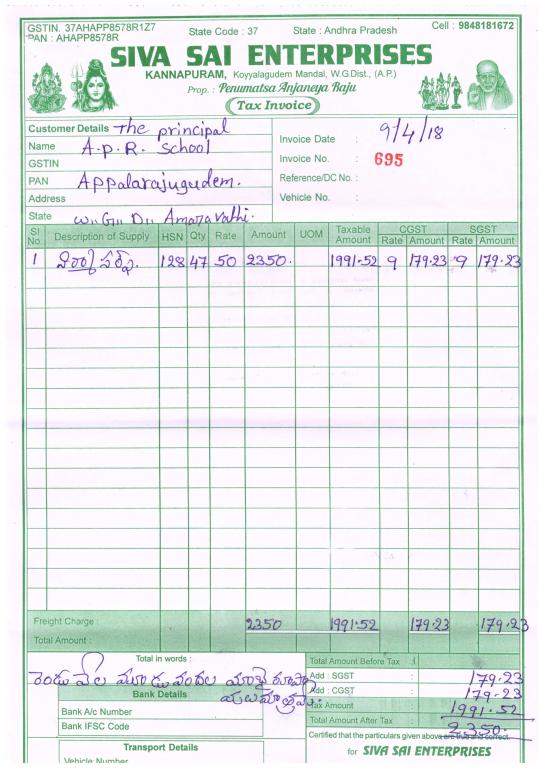 GSTIN. 37AHAPP8578R1Z7
State Code : 37
State : Andhra Pradesh
Cell : 9848181672
PAN : AHAPP8578R
SIVA SAI ENTERPRISES
KANNAPURAM, Koyyalagudem Mandal, W.G.Dist., (A.P.)
Prop. : Penumatsa Anjaneya Raju
Tax Invoice
Customer Details The principal
Name A.P.R. School
GSTIN
PAN Appalarajugudem.
Address
State W.G.D. Amaravathi.
Invoice Date : 9/4/18
Invoice No. : 695
Reference/DC No. :
Vehicle No. :
Sl No. Description of Supply HSN Qty Rate Amount UOM Taxable Amount CGST Rate Amount SGST Rate Amount
1 128 47 50 2350. 1991.52 9 179.23 9 179.23
Freight Charge : 2350 1991.52 179.23 179.23
Total Amount :
Total in words :
రెండు వేల మూడు వందల యాభై రూపా
యలు మాత్రమే.
Bank Details
Bank A/c Number
Bank IFSC Code
Transport Details
Vehicle Number
Total Amount Before Tax :
Add : SGST : 179.23
Add : CGST : 179.23
Tax Amount : 1991.52
Total Amount After Tax : 2350.
Certified that the particulars given above are true and correct.
for SIVA SAI ENTERPRISES